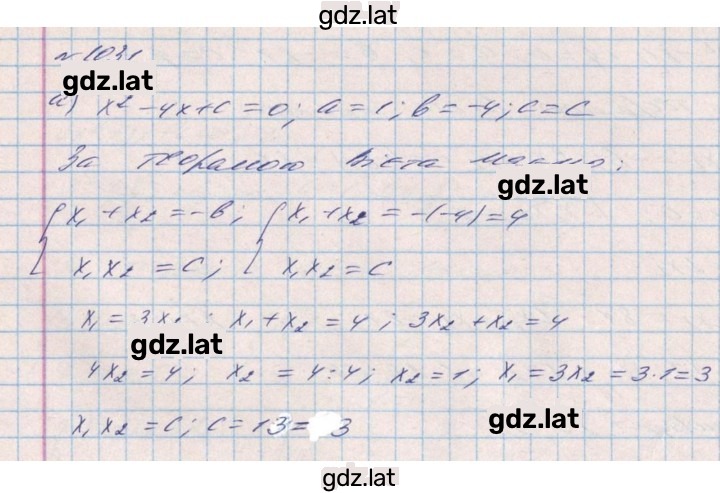 gdz.lat
№ 1031
gdz.lat
а) x² - 4x + c = 0; a = 1; b = -4; c = c
За теоремою Вієта маємо:
gdz.lat
{ x₁ + x₂ = -b; { x₁ + x₂ = -(-4) = 4
x₁x₂ = c; x₁x₂ = c
x₁ = 3x₂; x₁ + x₂ = 4; 3x₂ + x₂ = 4
gdz.lat
4x₂ = 4; x₂ = 4:4; x₂ = 1; x₁ = 3x₂ = 3·1 = 3
x₁x₂ = c; c = 1·3 = 3
gdz.lat
gdz.lat